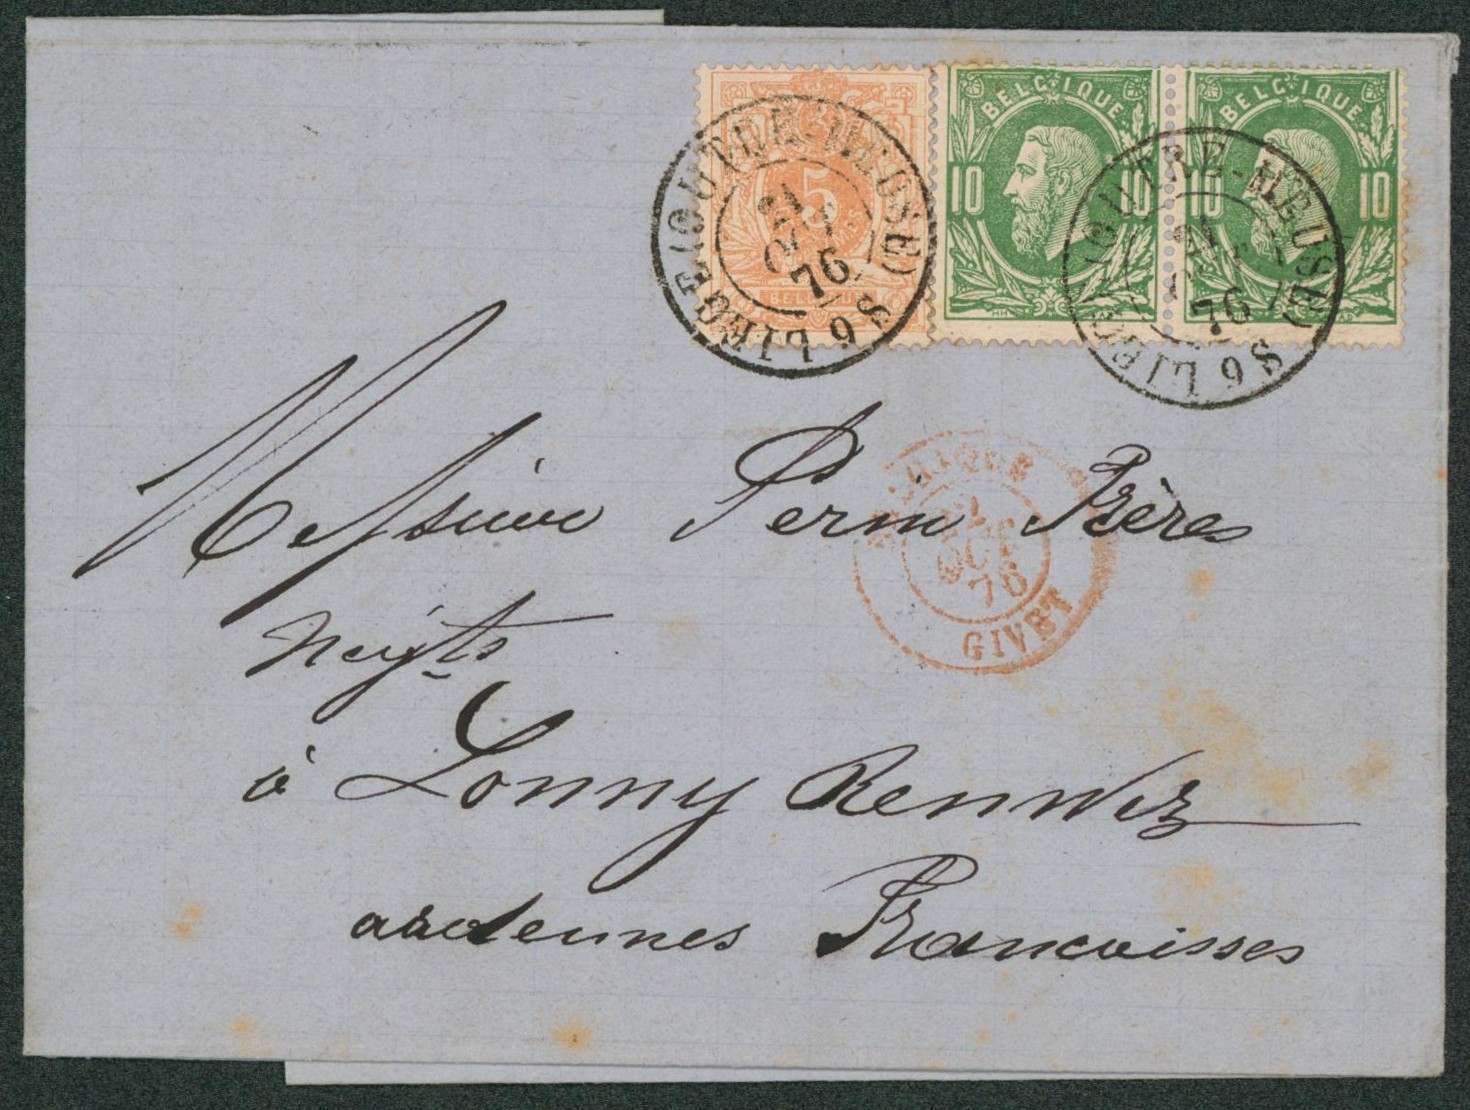 5
BELGIQUE
BELGIQUE
10 10
BELGIQUE
10 10
LIEGE (OUTRE-MEUSE)
21
OCT
76
6 S
LIEGE (OUTRE-MEUSE)
21
OCT
76
6 S
BELGIQUE
OCT
76
GIVET
Messieurs Perin Frères
Negts
à Lonny Renwez
ardennes Francaisses